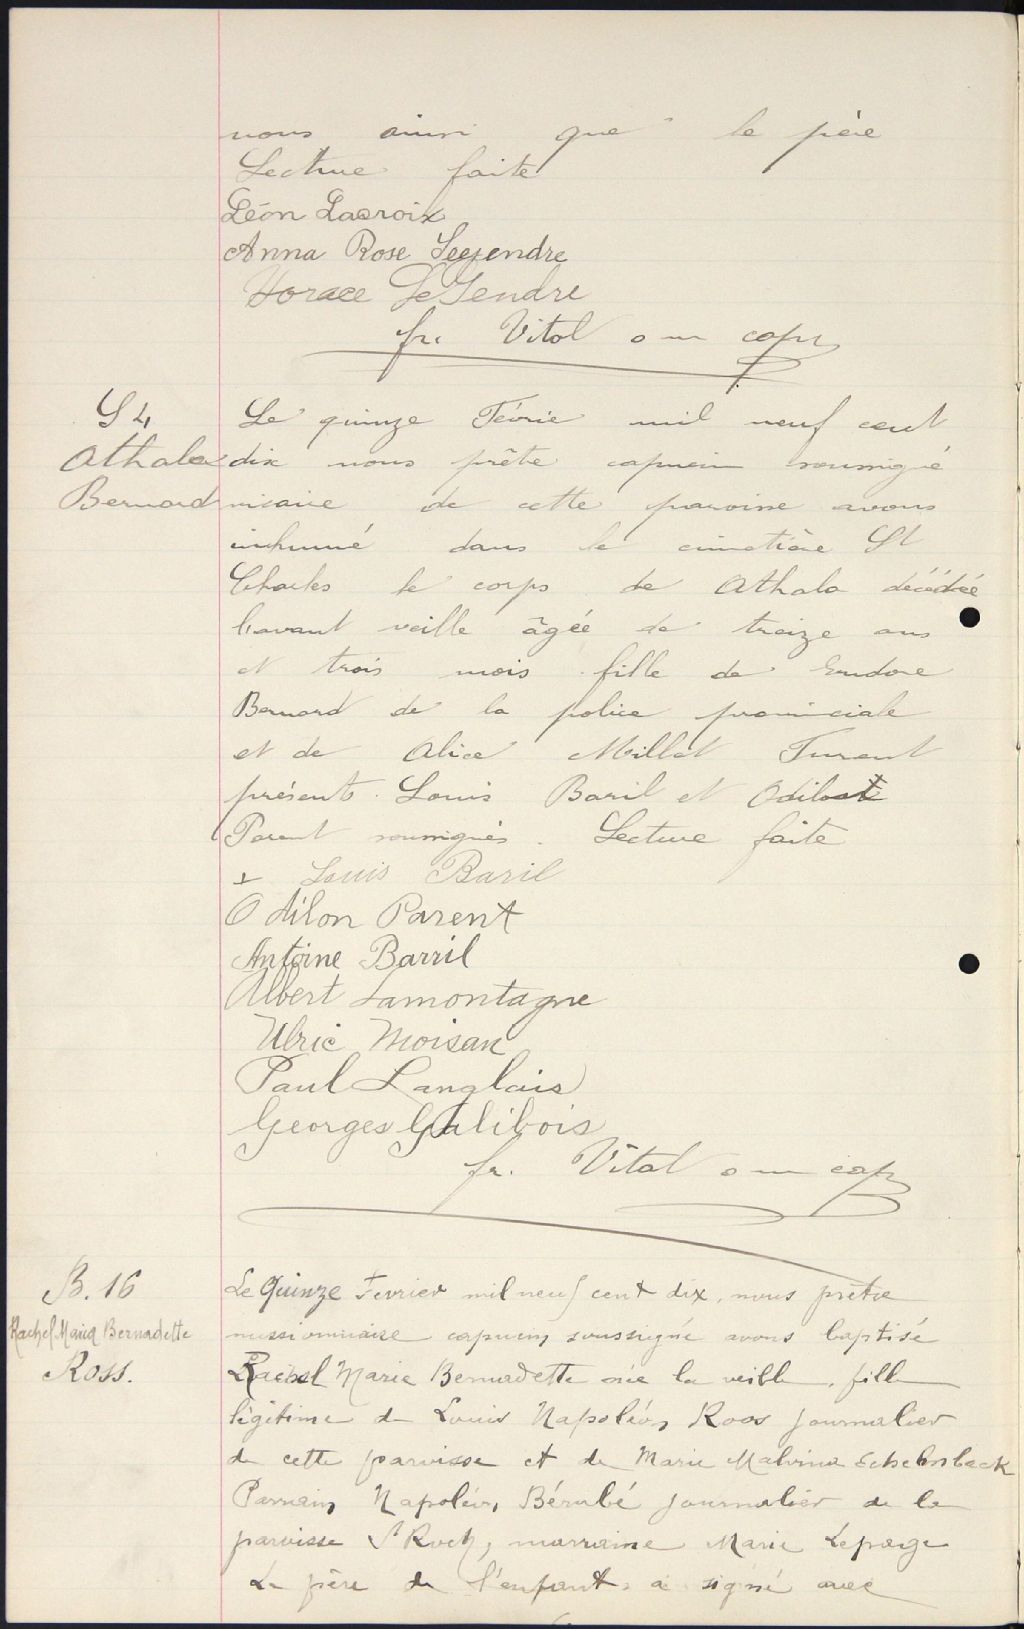 nous ainsi que le père
Lecture faite
Léon Lacroix
Anna Rose Legendre
Horace LeGendre
fr. Vital o m cap
S 4
Athala
Bernard
Le quinze Février mil neuf cent
dix nous prêtre capucin soussigné
vicaire de cette paroisse avons
inhumé dans le cimetière St
Charles le corps de Athala décédée
l'avant veille âgée de treize ans
et trois mois fille de Eudore
Bernard de la police provinciale
et de Alice Millet Furent
présents Louis Baril et
Parent soussignés. Lecture faite
+ Louis Baril
Odilon Parent
Antoine Barril
Albert Lamontagne
Ulric Moisan
Paul Langlais
Georges Galibois
fr. Vital o m cap
B. 16
Rachel Maria Bernadette
Ross.
Le Quinze Fevrier mil neuf cent dix, nous prêtre
missionnaire capucin soussigné avons baptisé
Rachel Marie Bernadette née la veille, fille
légitime de Louis Napoléon Ross journalier
de cette paroisse et de Marie Malvina
Parrain Napoléon Bérubé journalier de la
paroisse St Roch, marraine Marie Lepage
Le père de l'enfant a signé avec